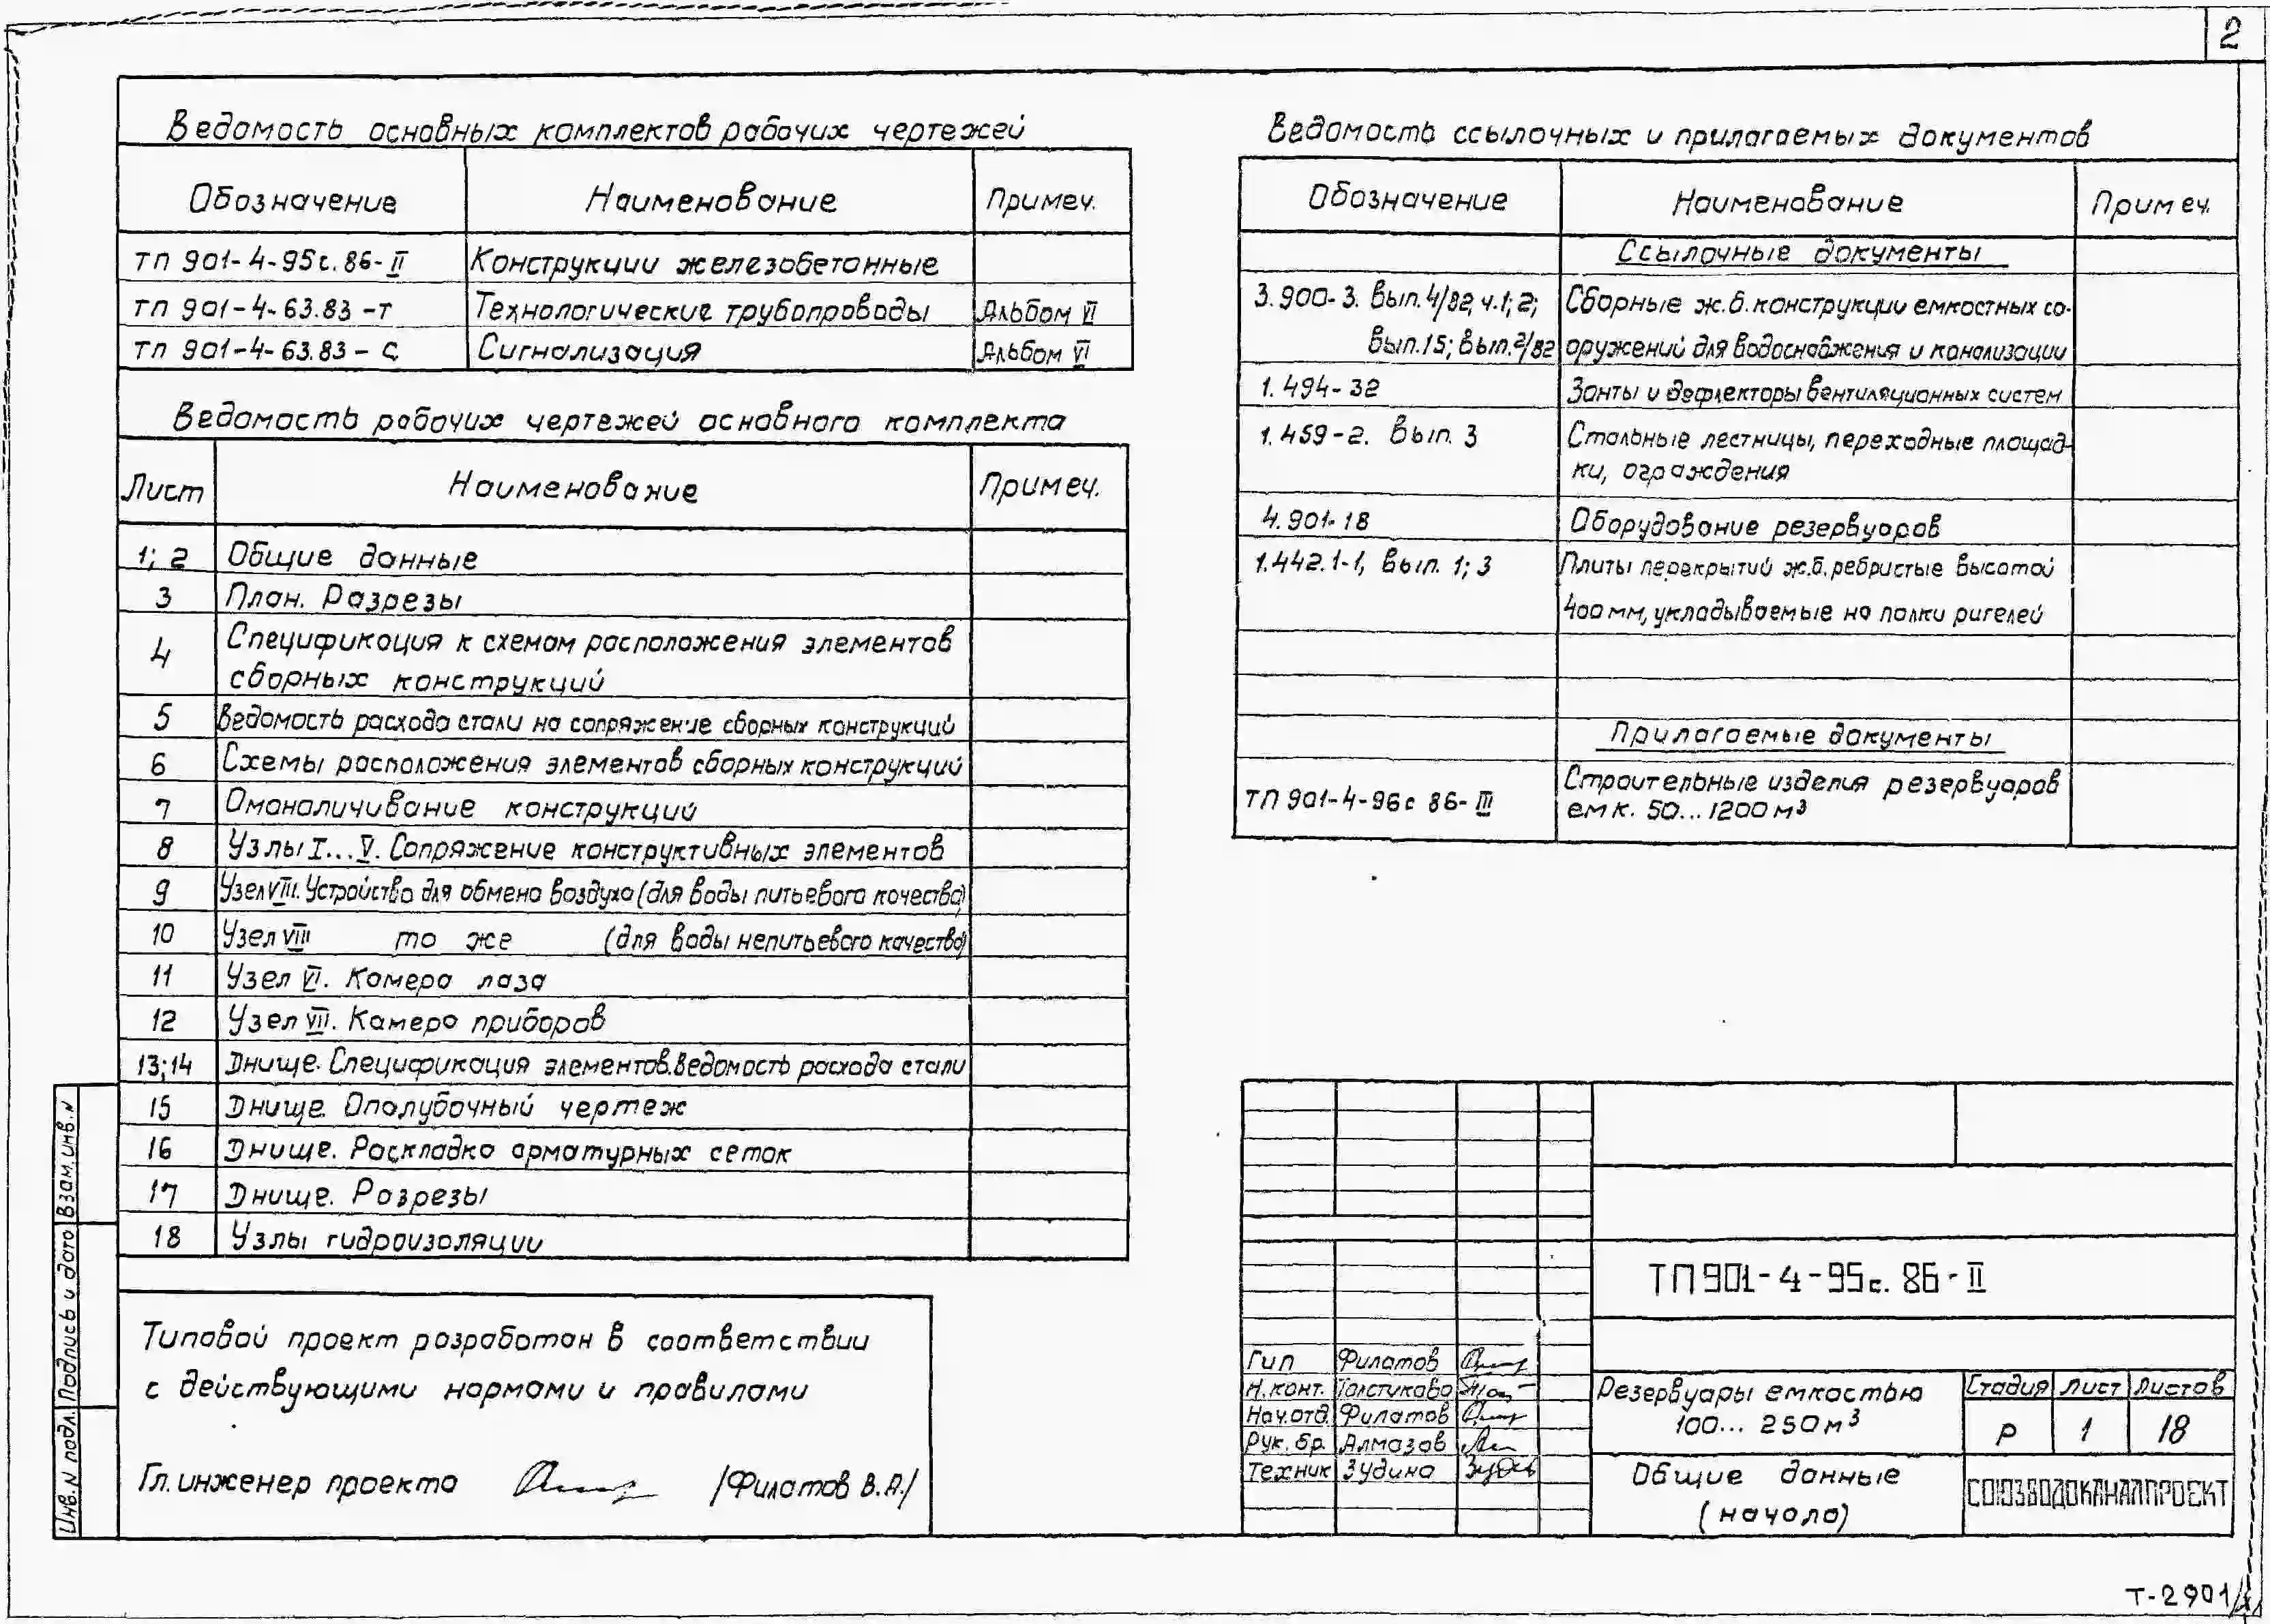 2
Ведомость основных комплектов рабочих чертежей
Обозначение Наименование Примеч.
ТП 901-4-95с.86-II Конструкции железобетонные
ТП 901-4-63.83-Т Технологические трубопроводы Альбом VI
ТП 901-4-63.83-С Сигнализация Альбом VI
Ведомость рабочих чертежей основного комплекта
Лист Наименование Примеч.
1; 2 Общие данные
3 План. Разрезы
4 Спецификация к схемам расположения элементов
сборных конструкций
5 Ведомость расхода стали на сопряжение сборных конструкций
6 Схемы расположения элементов сборных конструкций
7 Омоноличивание конструкций
8 Узлы I...V. Сопряжение конструктивных элементов
9 Узел VIII. Устройство для обмена воздуха (для воды питьевого качества)
10 Узел VIII то же (для воды непитьевого качества)
11 Узел VI. Камера лаза
12 Узел VII. Камера приборов
13;14 Днище. Спецификация элементов. Ведомость расхода стали
15 Днище. Опалубочный чертеж
16 Днище. Раскладка арматурных сеток
17 Днище. Разрезы
18 Узлы гидроизоляции
Типовой проект разработан в соответствии
с действующими нормами и правилами
Гл. инженер проекта /Филатов В.А./
Ведомость ссылочных и прилагаемых документов
Обозначение Наименование Примеч.
Ссылочные документы
3.900-3. Вып.4/82, ч.1; 2; Сборные ж.б. конструкции емкостных со-
Вып.15; Вып.2/82 оружений для водоснабжения и канализации
1.494-32 Зонты и дефлекторы вентиляционных систем
1.459-2. Вып. 3 Стальные лестницы, переходные площад-
ки, ограждения
4.901-18 Оборудование резервуаров
1.442.1-1, Вып. 1; 3 Плиты перекрытий ж.б. ребристые высотой
400 мм, укладываемые на полки ригелей
Прилагаемые документы
ТП 901-4-96с 86-III Строительные изделия резервуаров
емк. 50...1200 м³
ТП 901-4-95с. 86-II
Гип Филатов
Н.конт. Толстикова
Нач.отд. Филатов
Рук. бр. Алмазов
Техник Зудина
Резервуары емкостью
100... 250 м³
Стадия Лист Листов
Р 1 18
Общие данные
(начало)
СОЮЗВОДОКАНАЛПРОЕКТ
Инв. N подл. Подпись и дата Взам. инв. N
Т-2901